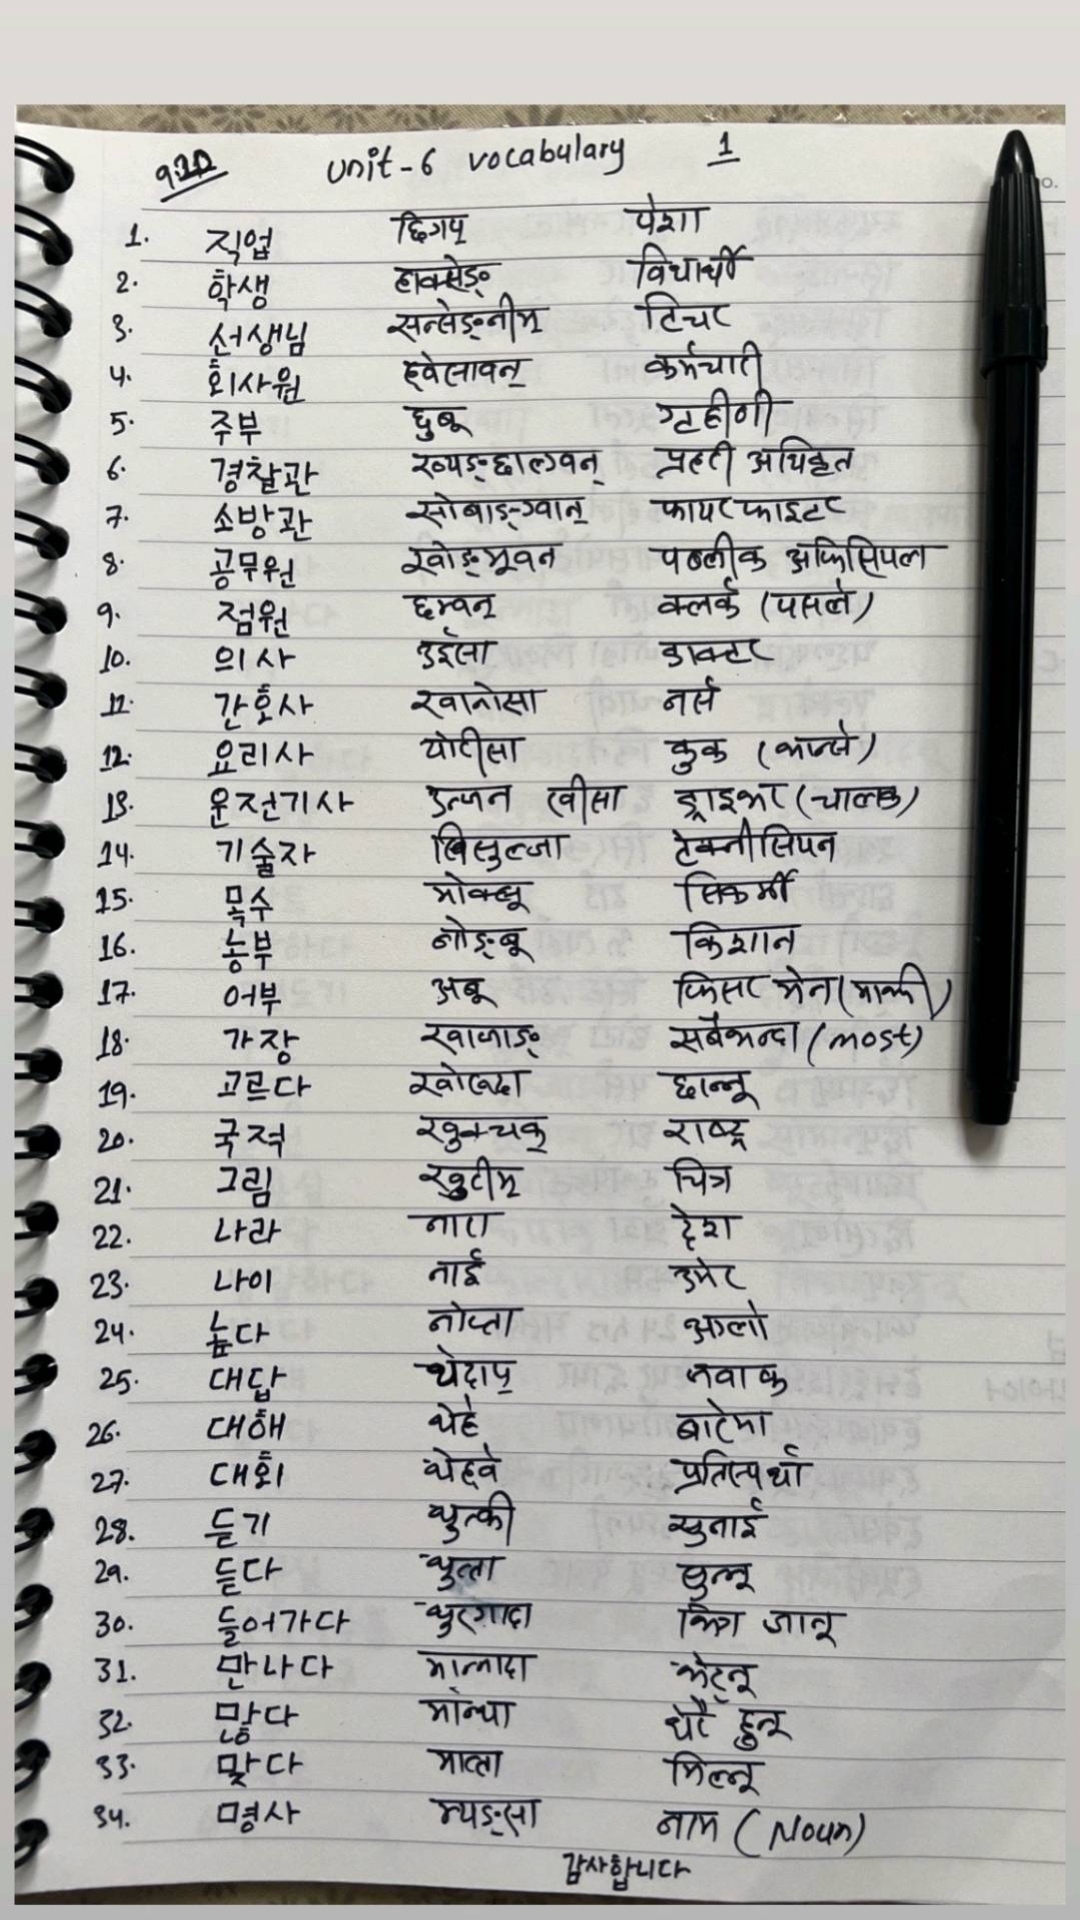 Unit-6 vocabulary 1
1. 직업 छिगप् पेशा
2. 학생 हाक्सेङ् विधार्थी
3. 선생님 सन्सेङ्नीम् टिचर
4. 회사원 ह्वेसावन् कर्मचारी
5. 주부 छुबू गृहीणी
6. 경찰관 ख्यङ्छाल्ग्वन् प्रहरी अधिकृत
7. 소방관 सोबाङ्ग्वान् फायर फाइटर
8. 공무원 खोङ्मूवन पब्लीक अफिसियल
9. 점원 छम्वन् क्लर्क (पसले)
10. 의사 उईसा डाक्टर
11. 간호사 खानोसा नर्स
12. 요리사 योरीसा कुक (भान्से)
13. 운전기사 उन्जन खीसा ड्राइभर (चालक)
14. 기술자 खिसुल्जा टेक्नीसियन
15. 목수 मोक्सू सिकर्मी
16. 농부 नोङ्बू किशान
17. 어부 अबू फिसर मेन (माझी)
18. 가장 खाजाङ् सबैभन्दा (most)
19. 고르다 खोरुदा छान्नू
20. 국적 खुक्चक् राष्ट्र
21. 그림 खुरीम् चित्र
22. 나라 नारा देश
23. 나이 नाई उमेर
24. 높다 नोप्ता अलो
25. 대답 थेदाप् जवाफ
26. 대해 थेहे बारेमा
27. 대회 थेह्वे प्रतिस्पर्धा
28. 듣기 थुत्की सुनाई
29. 듣다 थुत्ता सुन्नू
30. 들어가다 थुरगादा भित्र जानू
31. 만나다 मान्नादा भेट्नू
32. 많다 मान्था धेरै हुनू
33. 맞다 मात्ता मिल्नू
34. 명사 म्यङ्सा नाम (Noun)
감사합니다